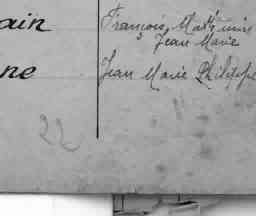 ain François, Mathurin
& Jean Marie
ne Jean Marie Philippe
22